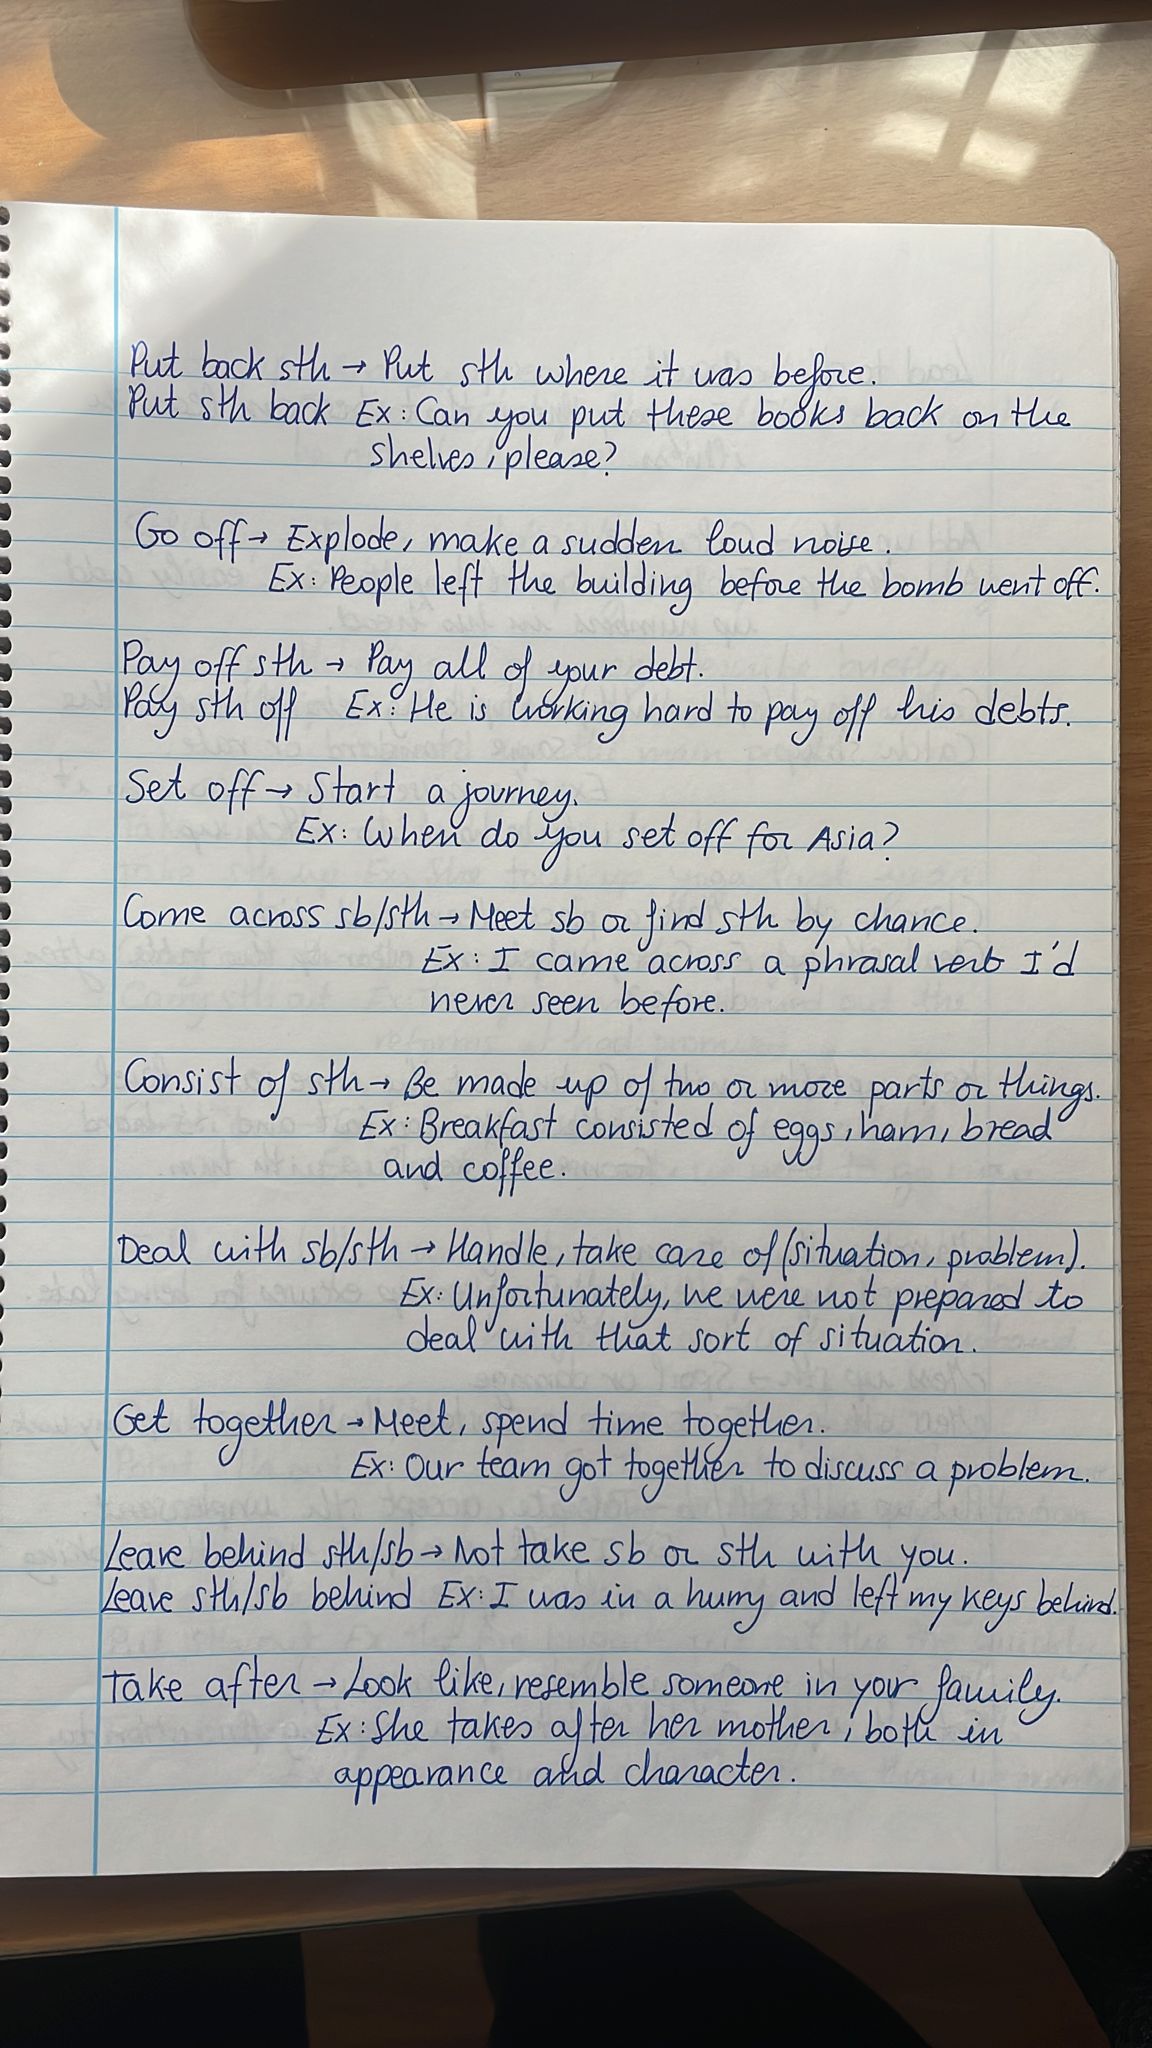 Put back sth → Put sth where it was before.
Put sth back Ex: Can you put these books back on the
shelves, please?
Go off → Explode, make a sudden loud noise.
Ex: People left the building before the bomb went off.
Pay off sth → Pay all of your debt.
Pay sth off Ex: He is working hard to pay off his debts.
Set off → Start a journey.
Ex: When do you set off for Asia?
Come across sb/sth → Meet sb or find sth by chance.
Ex: I came across a phrasal verb I'd
never seen before.
Consist of sth → Be made up of two or more parts or things.
Ex: Breakfast consisted of eggs, ham, bread
and coffee.
Deal with sb/sth → Handle, take care of (situation, problem).
Ex: Unfortunately, we were not prepared to
deal with that sort of situation.
Get together → Meet, spend time together.
Ex: Our team got together to discuss a problem.
Leave behind sth/sb → Not take sb or sth with you.
Leave sth/sb behind Ex: I was in a hurry and left my keys behind.
Take after → Look like, resemble someone in your family.
Ex: She takes after her mother, both in
appearance and character.